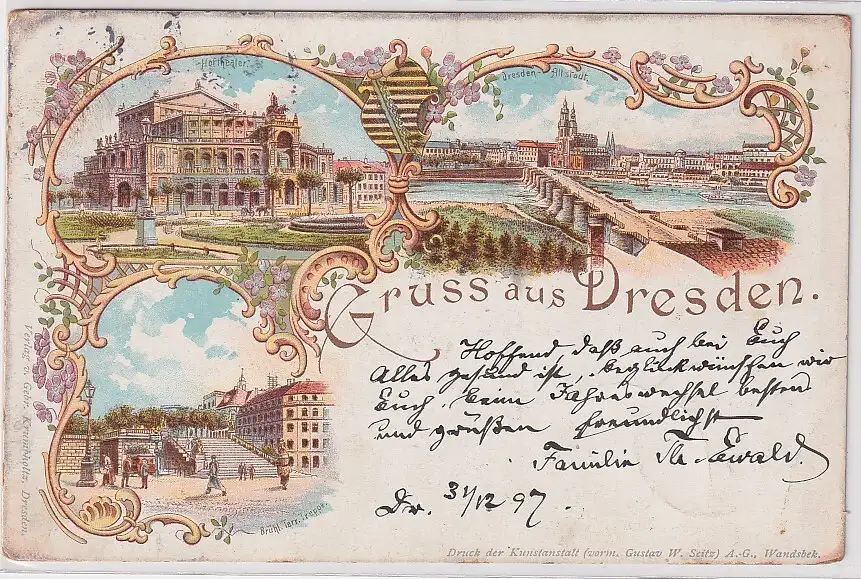 Hoftheater.
Dresden-Altstadt.
Gruss aus Dresden.
Hoffend, daß auch bei Euch
Alles gesund ist, beglückwünschen wir
Euch beim Jahreswechsel bestens
und grüßen freundlichst
Familie Th. Ewald.
Dr. 31/12 97.
Brühl. Terr. Treppe.
Verlag v. Gebr. Dresden.
Druck der Kunstanstalt (vorm. Gustav W. Seitz) A.-G., Wandsbek.